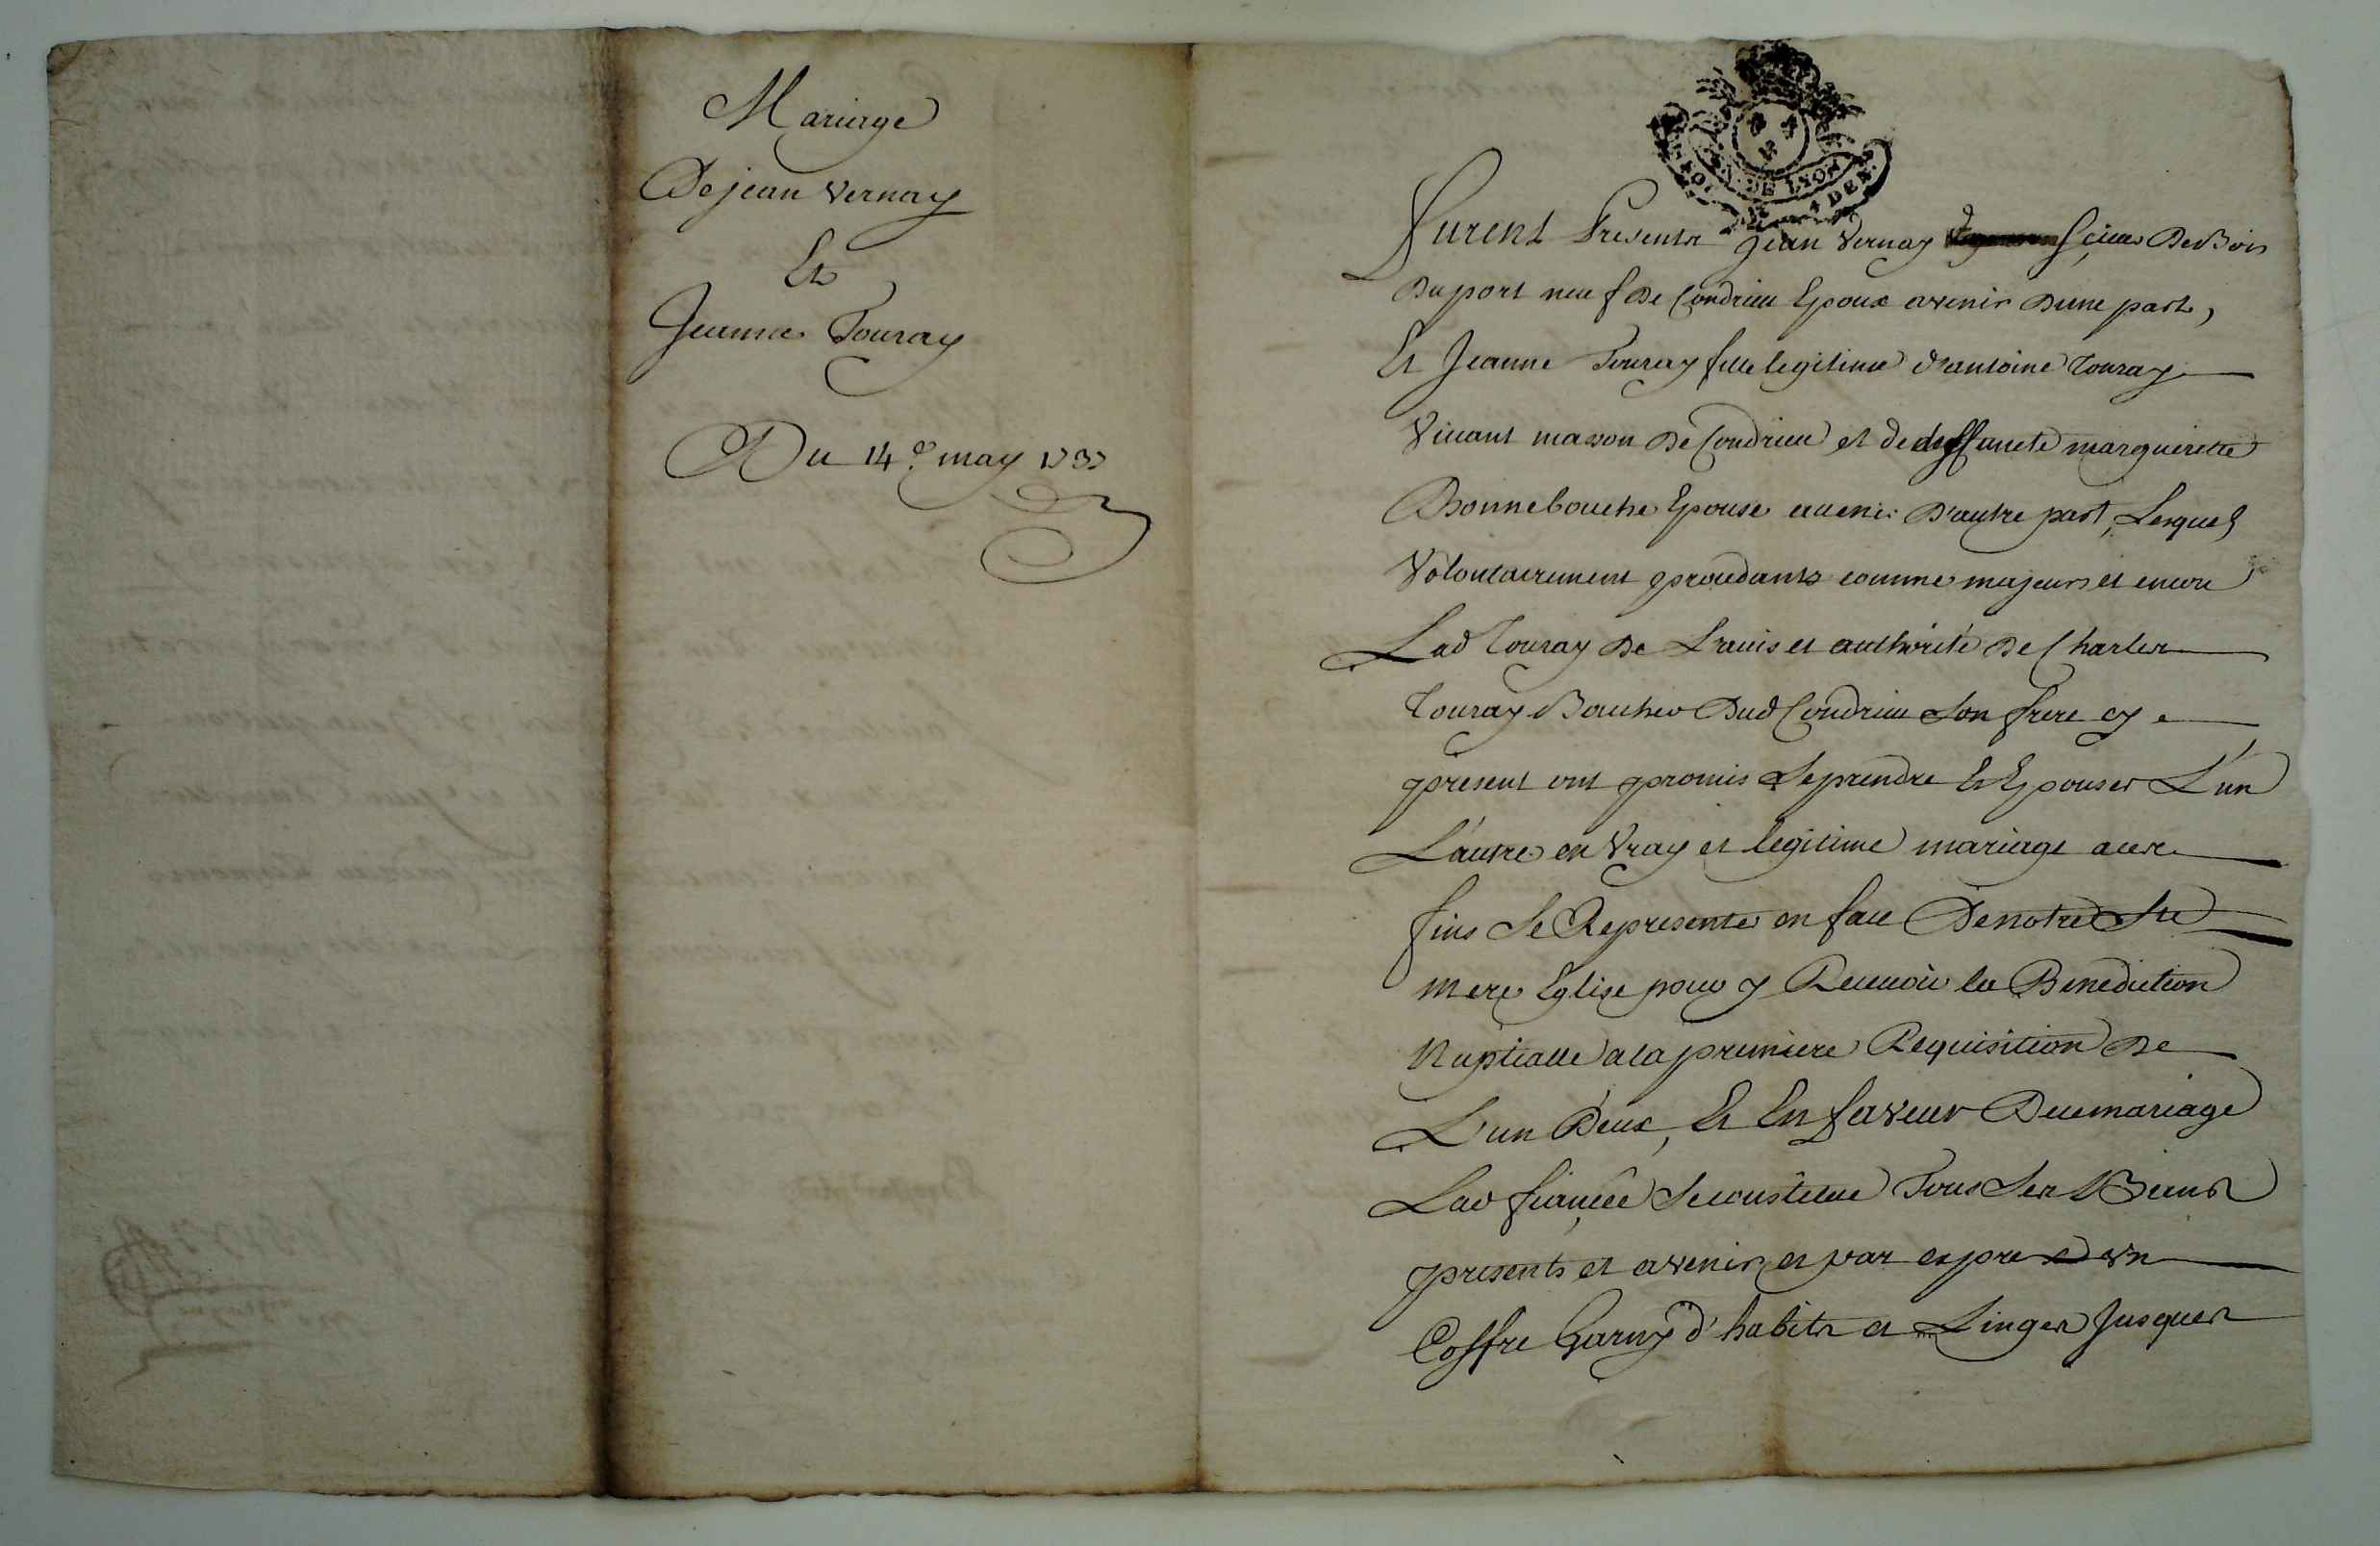 Mariage
De jean Vernay
Et
Jeanne Touray
Du 14e may 1737
GN. DE LYON
4 DEN.
Furent Presents Jean Vernay Scieur De Bois
Du port neuf De Condrieu Epoux avenir Dune part,
Et Jeanne Touray fille legitime d'antoine Touray
Vivant masson De Condrieu et de deffuncte marguerite
Bonnebouche Epouse avenir D'autre part, Lesquels
Volontairement procedants comme majeurs et encore
Lad Touray De L'avis et authorité De Charles
Touray Boucher Dud Condrieu Son frere cy
present ont promis Se prendre Et Epouser L'un
L'autre en Vray et legitime mariage a ces
fins Se Representer en face De notre Ste
mere Eglise pour y Recevoir la Benediction
Nuptialle a la premiere Requisition De
L'un D'eux, Et En faveur Du ce mariage
Lad fiancée Se constitue Tous Ses Biens
presents et avenir et par expres un
Coffre Garny d'habits et Linges Jusques